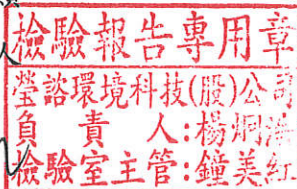 檢驗報告專用章
瑩諮環境科技(股)公司
負責人:楊炯
檢驗室主管:鐘美紅